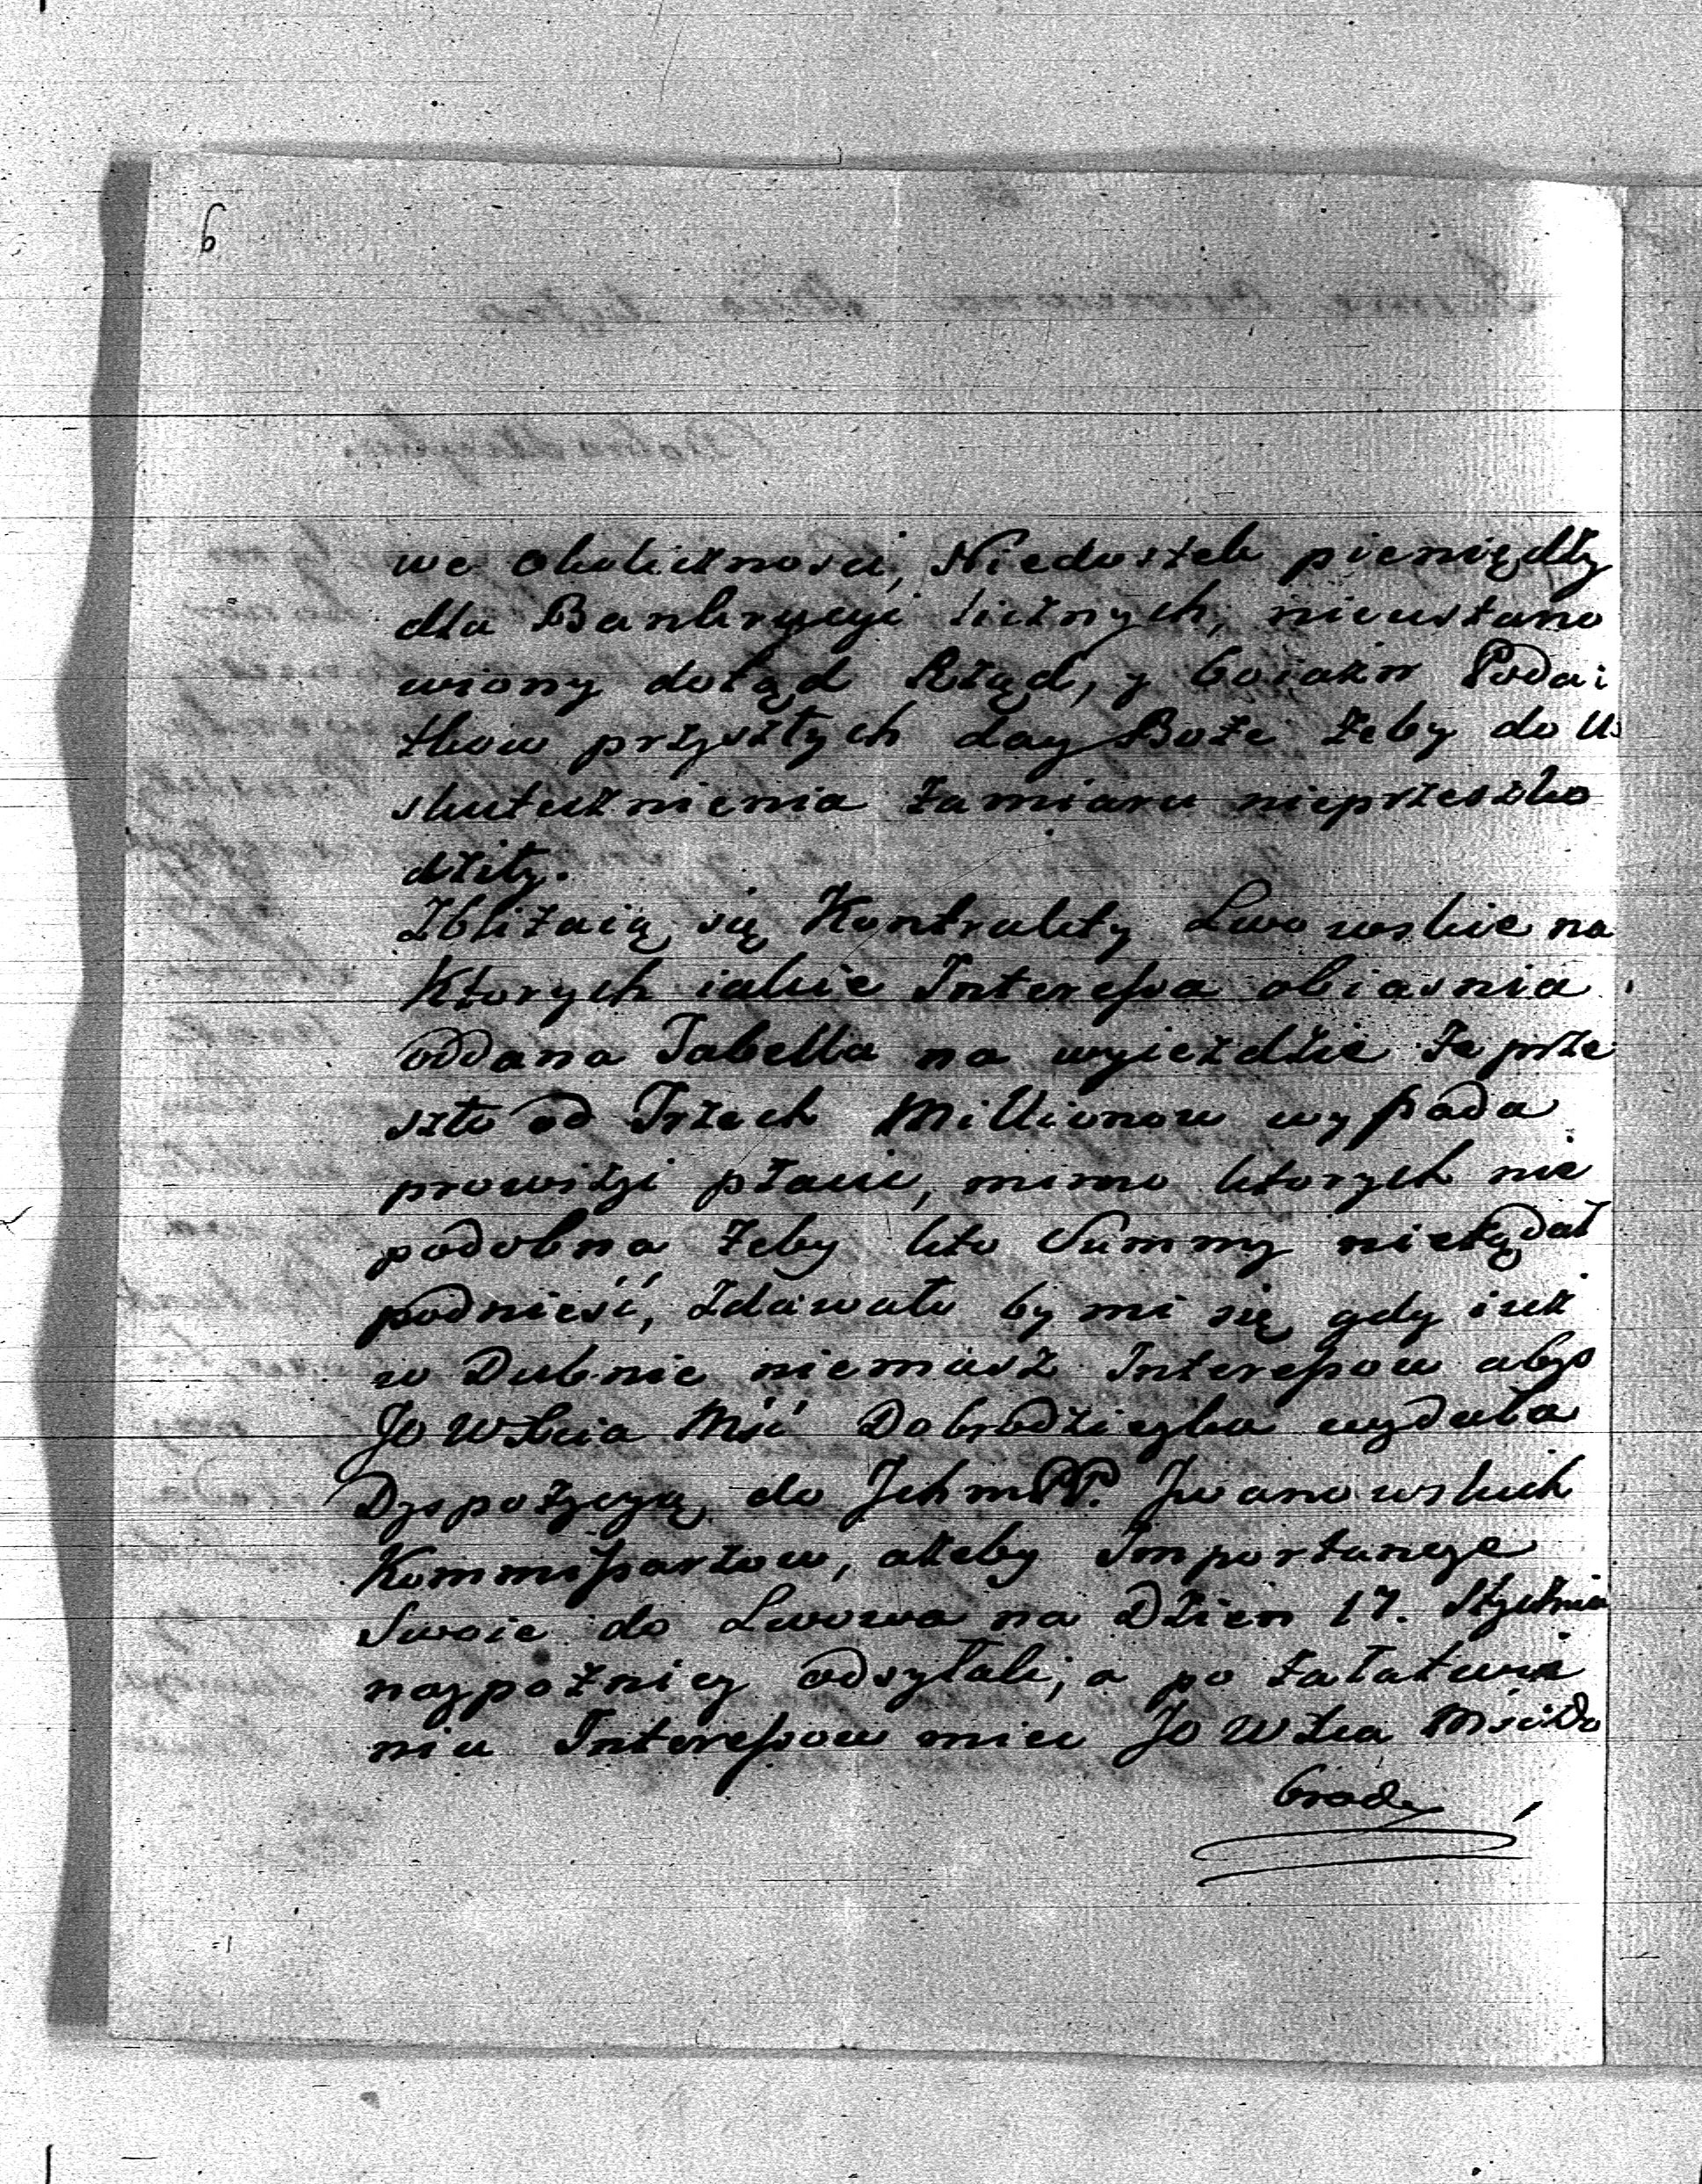 6
we okolicznosci, Niedostek pieniędzy
dla Bankrucyi licznych, nieustano
wiony dotąd Rząd, y boiazn Poda:
tkow przyszłych day Boże żeby do U:
skutecznienia zamiaru nieprzeszko
dziły.
Zbliżaią się Kontrakty Lwowskie na
Ktorych iakie Interessa obiasnia
oddana Tabella na wyieździe że prze
szło od Trzech Millionow wypada
prowizyi płacic, mimo ktorych nie
podobna żeby kto Summy nieżądał
podnieść, zdawało by mi się gdy iuż
w Dubnie niemasz Interessow abyś
JO WXcia Mść Dobrodzieyka wydała
Dyspozycyą do JchmPP. Jwanowskich
Kommissarzow, ażeby Importancye
Swoie do Lwowa na Dzien 17. Stycznia
naypoźniey odsyłali, a po załatwie
niu Interessow miec JO WXca MsciDo
brody